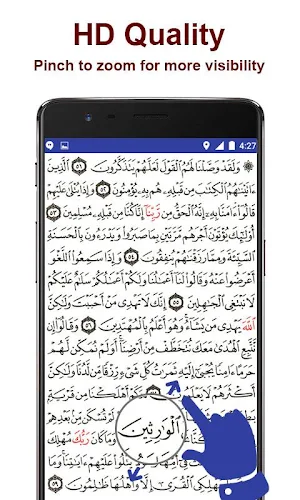 HD Quality
Pinch to zoom for more visibility
4:27
۞ وَلَقَدْ وَصَّلْنَا لَهُمُ ٱلْقَوْلَ لَعَلَّهُمْ يَتَذَكَّرُونَ ٥١ ٱلَّذِينَ
ءَاتَيْنَٰهُمُ ٱلْكِتَٰبَ مِن قَبْلِهِۦ هُم بِهِۦ يُؤْمِنُونَ ٥٢ وَإِذَا يُتْلَىٰ عَلَيْهِمْ
قَالُوٓا۟ ءَامَنَّا بِهِۦٓ إِنَّهُ ٱلْحَقُّ مِن رَّبِّنَآ إِنَّا كُنَّا مِن قَبْلِهِۦ مُسْلِمِينَ ٥٣
أُو۟لَٰٓئِكَ يُؤْتَوْنَ أَجْرَهُم مَّرَّتَيْنِ بِمَا صَبَرُوا۟ وَيَدْرَءُونَ بِٱلْحَسَنَةِ
ٱلسَّيِّئَةَ وَمِمَّا رَزَقْنَٰهُمْ يُنفِقُونَ ٥٤ وَإِذَا سَمِعُوا۟ ٱللَّغْوَ
أَعْرَضُوا۟ عَنْهُ وَقَالُوا۟ لَنَآ أَعْمَٰلُنَا وَلَكُمْ أَعْمَٰلُكُمْ سَلَٰمٌ عَلَيْكُمْ
لَا نَبْتَغِى ٱلْجَٰهِلِينَ ٥٥ إِنَّكَ لَا تَهْدِى مَنْ أَحْبَبْتَ وَلَٰكِنَّ
ٱللَّهَ يَهْدِى مَن يَشَآءُ وَهُوَ أَعْلَمُ بِٱلْمُهْتَدِينَ ٥٦ وَقَالُوٓا۟ إِن
نَّتَّبِعِ ٱلْهُدَىٰ مَعَكَ نُتَخَطَّفْ مِنْ أَرْضِنَآ أَوَلَمْ نُمَكِّن لَّهُمْ
حَرَمًا ءَامِنًا يُجْبَىٰٓ إِلَيْهِ ثَمَرَٰتُ كُلِّ
أَكْثَرَهُمْ لَا يَعْلَمُونَ أَهْلَكْنَا مِن قَرْيَةٍ
ٱلْوَٰرِثِينَ
وَمَا كَانَ رَبُّكَ
مُهْلِكِى ٱلْقُرَىٰٓ إِلَّا وَأَهْلُهَا ظَٰلِمُونَ ٥٩